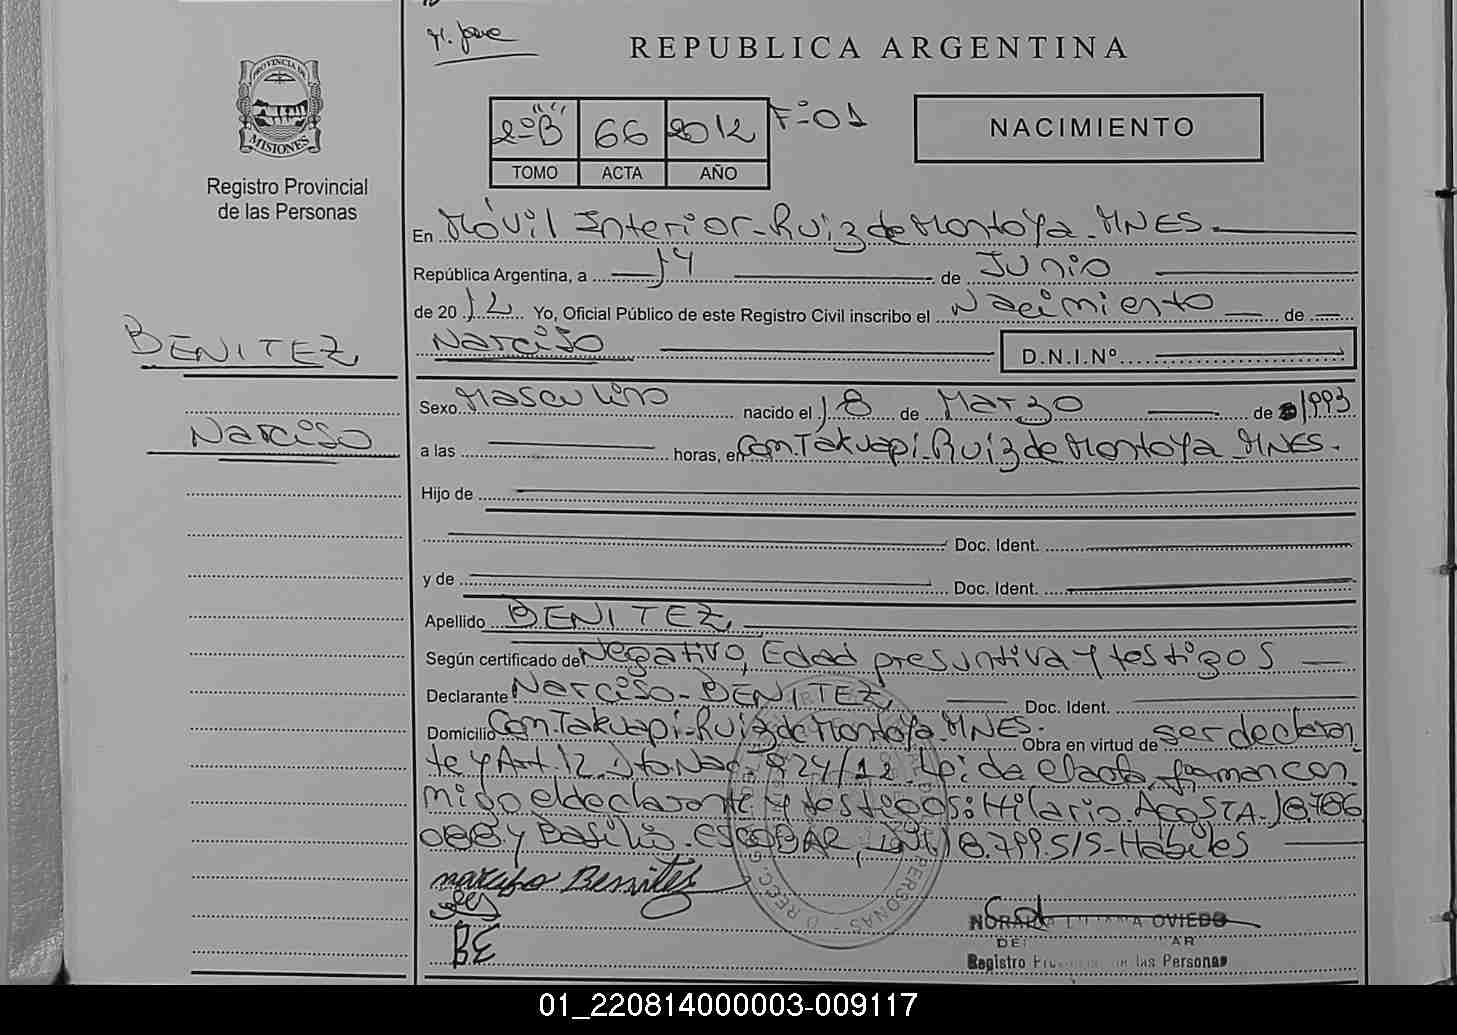 REPUBLICA ARGENTINA
PROVINCIA DE MISIONES
Registro Provincial
de las Personas
2º "B" 66 2012 Fº 01
TOMO ACTA AÑO
NACIMIENTO
En Móvil Interior - Ruiz de Montoya - MNES.
República Argentina, a 14 de Junio
de 2012 Yo, Oficial Público de este Registro Civil inscribo el Nacimiento de
Narciso D.N.I.Nº
BENITEZ
Narciso
Sexo Masculino nacido el 18 de Marzo de 1993
a las horas, en Com. Takuapi - Ruiz de Montoya - MNES.
Hijo de
Doc. Ident.
y de Doc. Ident.
Apellido BENITEZ
Según certificado de Negativo, Edad presuntiva y testigos
Declarante Narciso - BENITEZ, Doc. Ident.
Domicilio Com. Takuapi - Ruiz de Montoya MNES. Obra en virtud de ser declaran
te y Art. 12 Dto Nac. 924/12. Leída el acta, firman con
migo el declarante y testigos: Hilario ACOSTA 18.786
088 y Basilio ESCOBAR, DNI 18.799.515 - Hábiles
narciso Benitez
BE
OVIEDO
Registro de las Personas
01_220814000003-009117